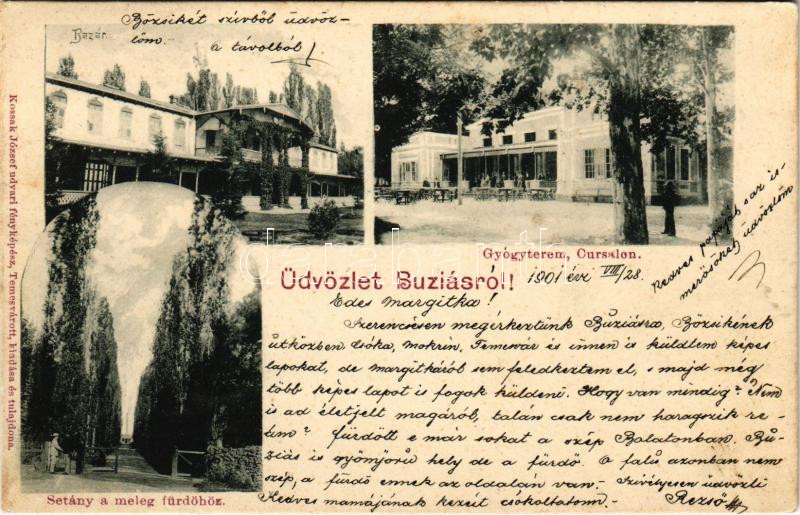 Bazár.
Bözsikét szívből üdvöz-
löm.-
a távolból!
Kossak József udvari fényképész, Temesvárott, kiadása és tulajdona.
Gyógyterem, Cursalon.
Kedves papáját s az is-
merősöket üdvözlöm
Üdvözlet Buziásról!
1901 évi VIII/28.
Édes Margitka!
Szerencsésen megérkeztünk Buziásra, Bözsikének
útközben Csóka, Mokrin, Temesvár és innen is küldtem képes
lapokat, de Margitkáról sem feledkeztem el, s majd még
több képes lapot is fogok küldeni. Hogy van mindig? Nem
is ad életjelt magáról, talán csak nem haragszik re-
ám? fürdött e már sokat a szép Balatonban. Bu-
ziás is gyönyörű hely de a fürdő. A falu azonban nem
szép, a fürdő ennek az oldalán van.- Szívélyesen üdvözli
Kedves mamájának kezeit csókoltatom.- Rezső
Setány a meleg fürdőhöz.
darabanth